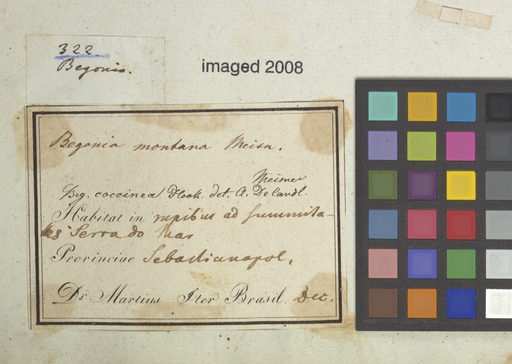 322
Begonia.
imaged 2008
Begonia montana Meisn.
Meisner
Beg. coccinea Hook. det. A. De Candl.
Habitat in rupibus ad summita-
tes Serra do Mar
Provinciae Sebastianopol.
Dr Martius Iter Brasil. Dec.